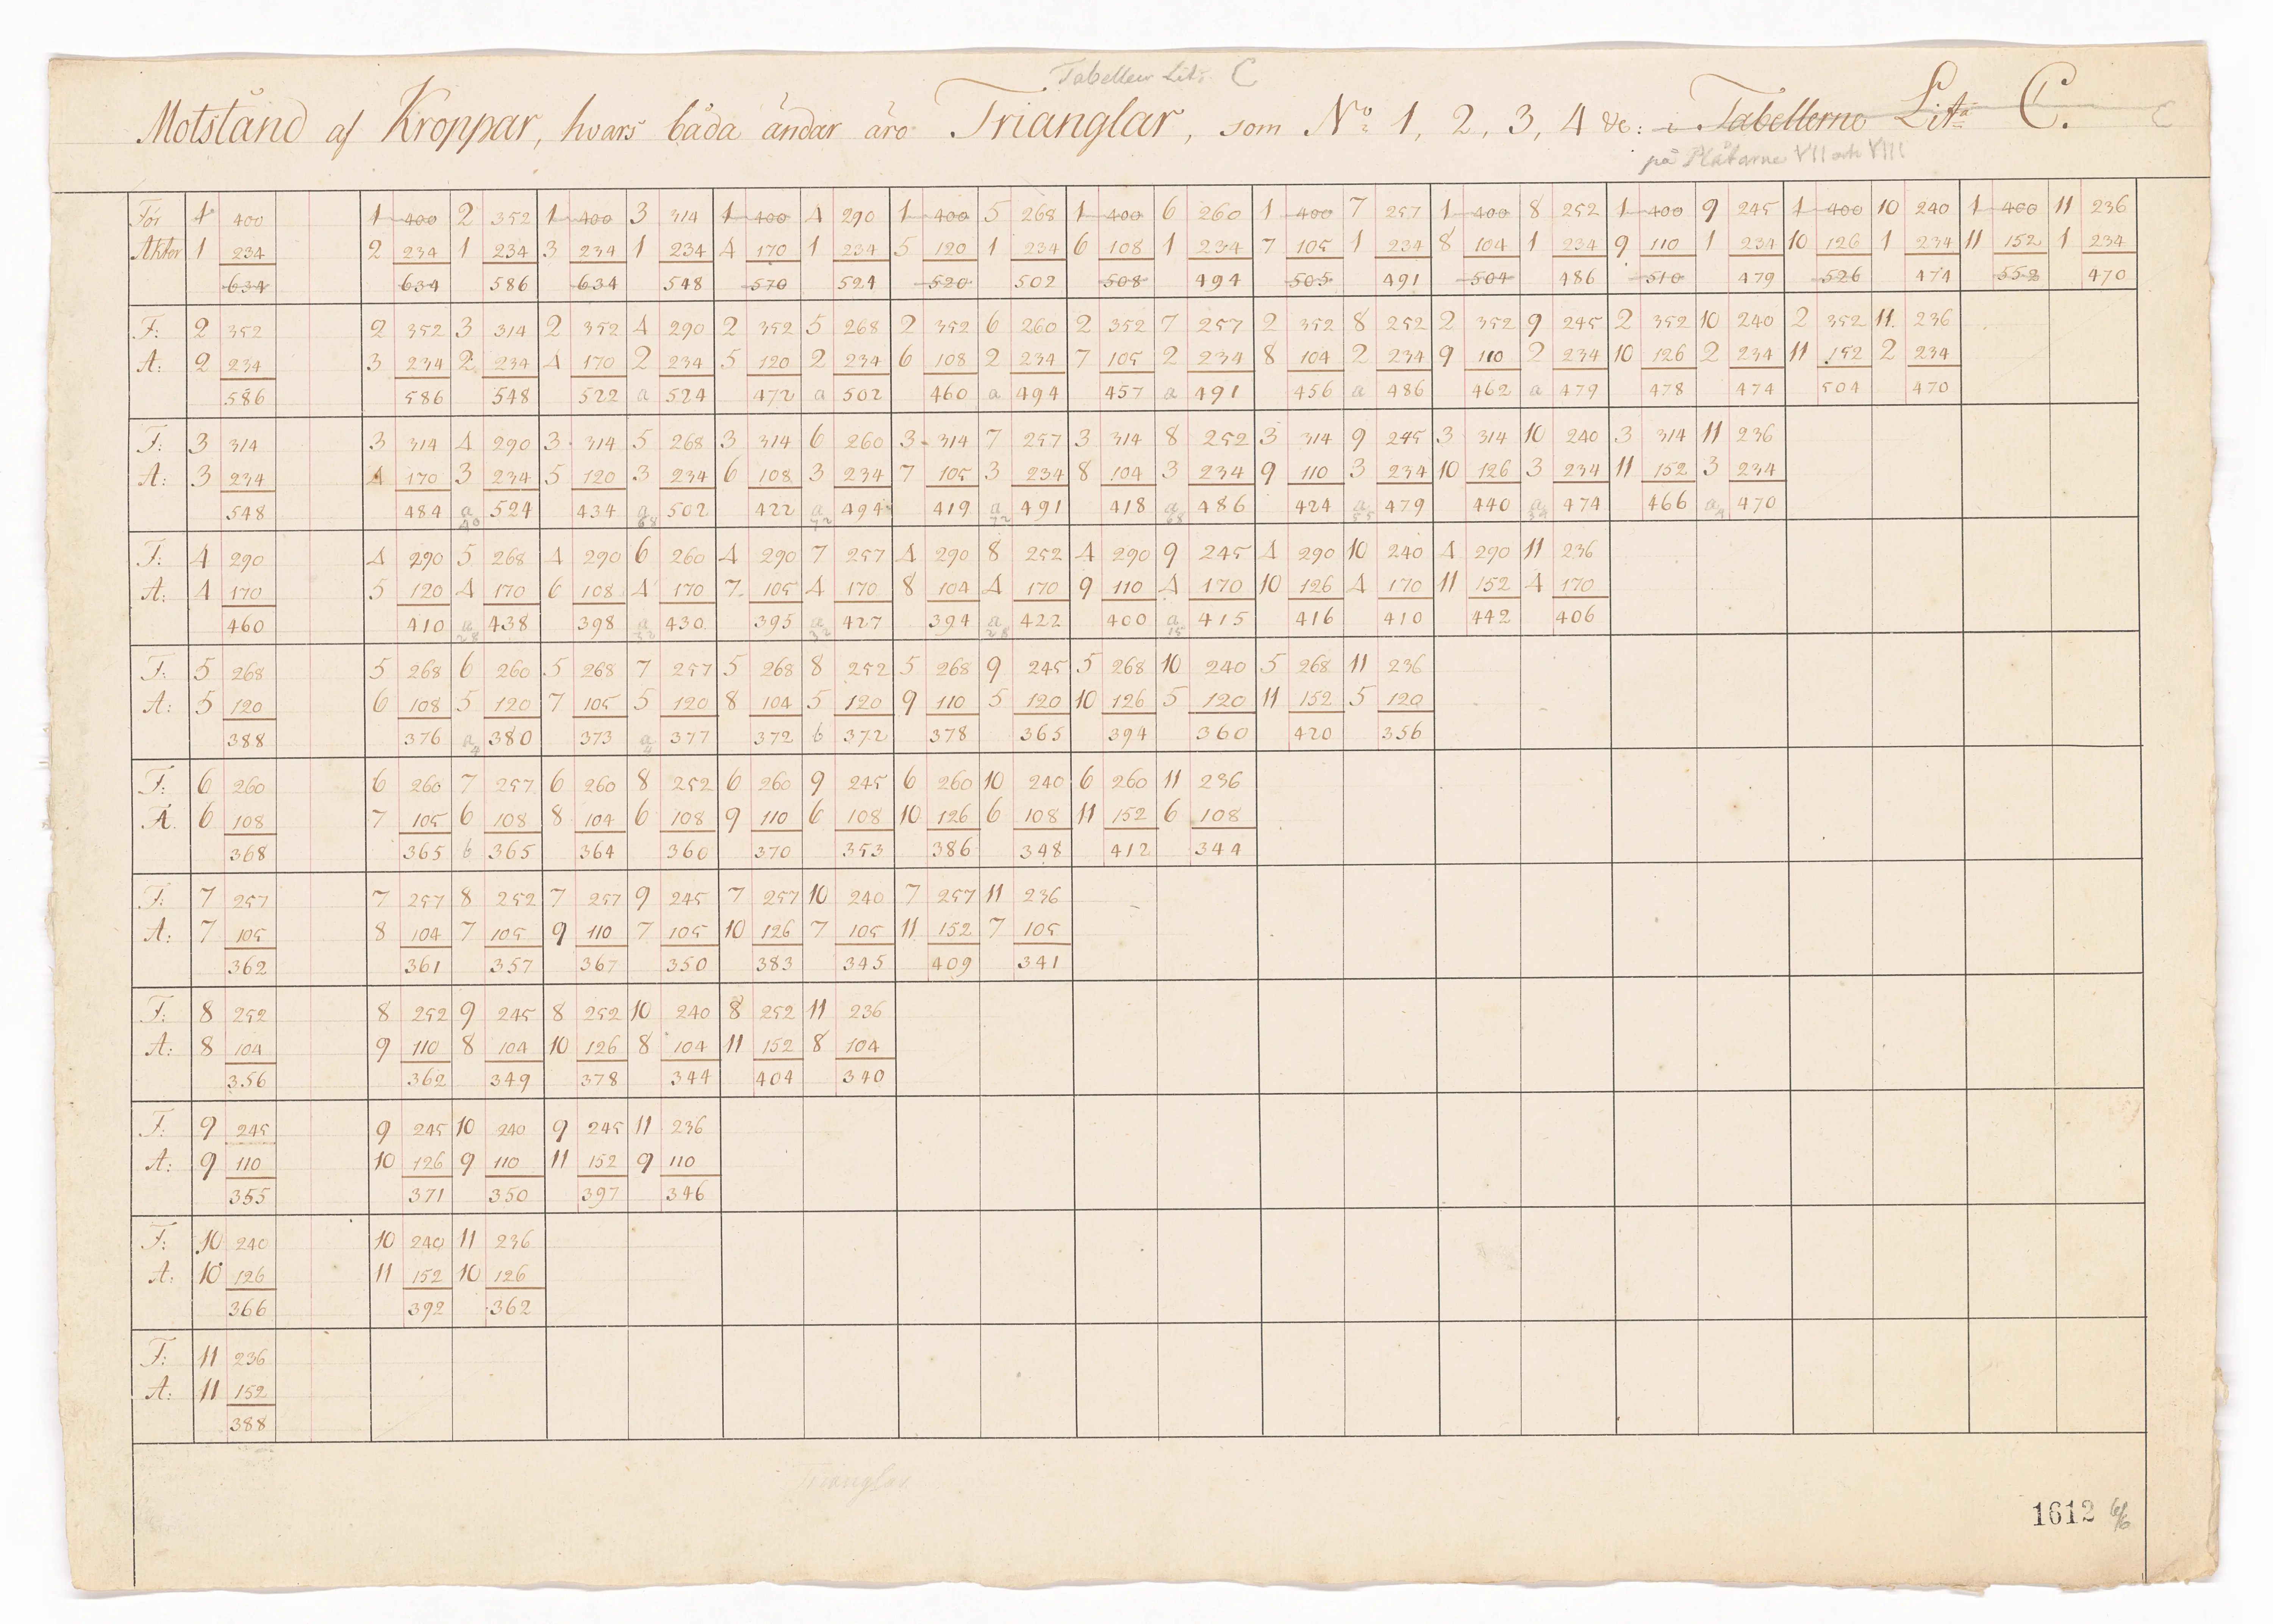 Tabellen Lit. C
Motstånd af Kroppar, hvars båda ändar äro Trianglar, som No 1, 2, 3, 4 &c: i Tabellerne Litа C. C
på Plåtarne VII och VIII
För 1 400 1 400 2 352 1 400 3 314 1 400 4 290 1 400 5 268 1 400 6 260 1 400 7 257 1 400 8 252 1 400 9 245 1 400 10 240 1 400 11 236
Akter 1 234 2 234 1 234 3 234 1 234 4 170 1 234 5 120 1 234 6 108 1 234 7 105 1 234 8 104 1 234 9 110 1 234 10 126 1 234 11 152 1 234
634 634 586 634 548 570 524 520 502 508 494 505 491 504 486 510 479 526 474 552 470
F: 2 352 2 352 3 314 2 352 4 290 2 352 5 268 2 352 6 260 2 352 7 257 2 352 8 252 2 352 9 245 2 352 10 240 2 352 11 236
A: 2 234 3 234 2 234 4 170 2 234 5 120 2 234 6 108 2 234 7 105 2 234 8 104 2 234 9 110 2 234 10 126 2 234 11 152 2 234
586 586 548 522 a 524 472 a 502 460 a 494 457 a 491 456 a 486 462 a 479 478 474 504 470
F: 3 314 3 314 4 290 3 314 5 268 3 314 6 260 3 314 7 257 3 314 8 252 3 314 9 245 3 314 10 240 3 314 11 236
A: 3 234 4 170 3 234 5 120 3 234 6 108 3 234 7 105 3 234 8 104 3 234 9 110 3 234 10 126 3 234 11 152 3 234
548 484 a 524 434 a 502 422 a 494 419 a 491 418 a 486 424 a 479 440 a 474 466 a 470
40 68 72 72 68 55 34 4
F: 4 290 4 290 5 268 4 290 6 260 4 290 7 257 4 290 8 252 4 290 9 245 4 290 10 240 4 290 11 236
A: 4 170 5 120 4 170 6 108 4 170 7 105 4 170 8 104 4 170 9 110 4 170 10 126 4 170 11 152 4 170
460 410 a 438 398 a 430 395 a 427 394 a 422 400 a 415 416 410 442 406
28 32 32 28 15
F: 5 268 5 268 6 260 5 268 7 257 5 268 8 252 5 268 9 245 5 268 10 240 5 268 11 236
A: 5 120 6 108 5 120 7 105 5 120 8 104 5 120 9 110 5 120 10 126 5 120 11 152 5 120
388 376 a 380 373 a 377 372 b 372 378 365 394 360 420 356
4 4
F: 6 260 6 260 7 257 6 260 8 252 6 260 9 245 6 260 10 240 6 260 11 236
A. 6 108 7 105 6 108 8 104 6 108 9 110 6 108 10 126 6 108 11 152 6 108
368 365 b 365 364 360 370 353 386 348 412 344
F: 7 257 7 257 8 252 7 257 9 245 7 257 10 240 7 257 11 236
A: 7 105 8 104 7 105 9 110 7 105 10 126 7 105 11 152 7 105
362 361 357 367 350 383 345 409 341
F: 8 252 8 252 9 245 8 252 10 240 8 252 11 236
A: 8 104 9 110 8 104 10 126 8 104 11 152 8 104
356 362 349 378 344 404 340
F: 9 245 9 245 10 240 9 245 11 236
A: 9 110 10 126 9 110 11 152 9 110
355 371 350 397 346
F: 10 240 10 240 11 236
A: 10 126 11 152 10 126
366 392 362
F: 11 236
A: 11 152
388
Trianglar
1612 6/6